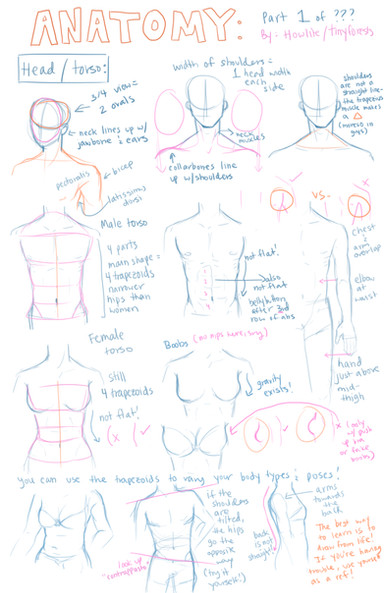 ANATOMY:
Part 1 of ???
By: Howlite/tinyforests
Head/torso:
3/4 view =
2 ovals
neck lines up w/
jawbone & ears
width of shoulders =
1 head width
each
side
neck
muscles
collarbones line
up w/shoulders
shoulders
are not a
straight line-
the trapezius
muscle makes
a △
(moreso in
guys)
pectoralis
bicep
latissimus
dorsi
Male torso
4 parts
main shape =
4 trapezoids
narrower
hips than
women
not flat!
also
not flat
bellybutton
after 3rd
row of abs
VS.
X
chest &
arm
overlap
elbow
at
waist
hand
just above
mid-
thigh
Female
torso
still
4 trapezoids
not flat!
X
Boobs (no nips here, sry)
gravity
exists!
X (only
w/ push
up bra
or fake
boobs)
you can use the trapezoids to vary your body types & poses!
if the
shoulders
are
tilted,
the hips
go the
opposite
way
(try it
yourself!)
look up
contrapposto
arms
towards
the
back
back
is not
straight!
The best way
to learn is to
draw from life!
If you're having
trouble, use yourself
as a ref!